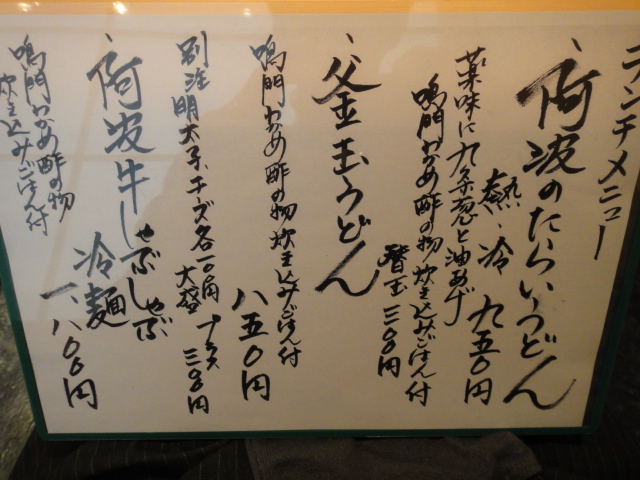 ランチメニュー
、阿波のたらいうどん
熱、冷 九五〇円
薬味に九条葱と油あげ
鳴門わかめ酢の物炊き込みごはん付
替玉 三〇〇円
、釜玉うどん
鳴門わかめ酢の物炊き込みごはん付
八五〇円
別注明太子、チーズ各一〇〇円
大盛 プラス 三〇〇円
、阿波牛しゃぶしゃぶ
冷麺
一、八〇〇円
鳴門わかめ酢の物
炊き込みごはん付